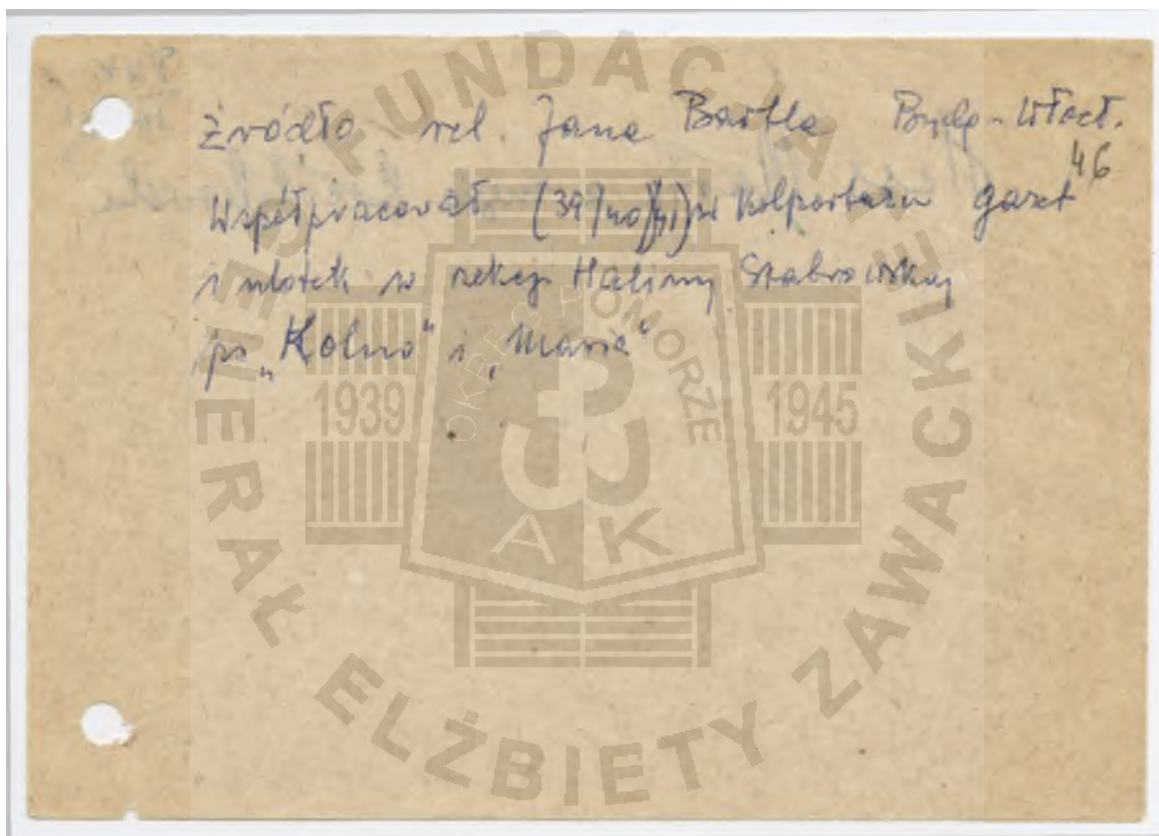 Źródło rel. Jana Bartla Bydg-Włocł.
46
Współpracował (39/40/41) w kolportażu gazet
i ulotek w sekcji Haliny Stabrowskiej
ps „Kolno" i „Maria"
FUNDACJA GENERAŁ ELŻBIETY ZAWACKIEJ
OKRĘG POMORZE
1939 1945
AK